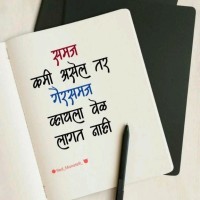 समज
कमी असेल तर
गैरसमज
व्हायला वेळ
लागत नाही